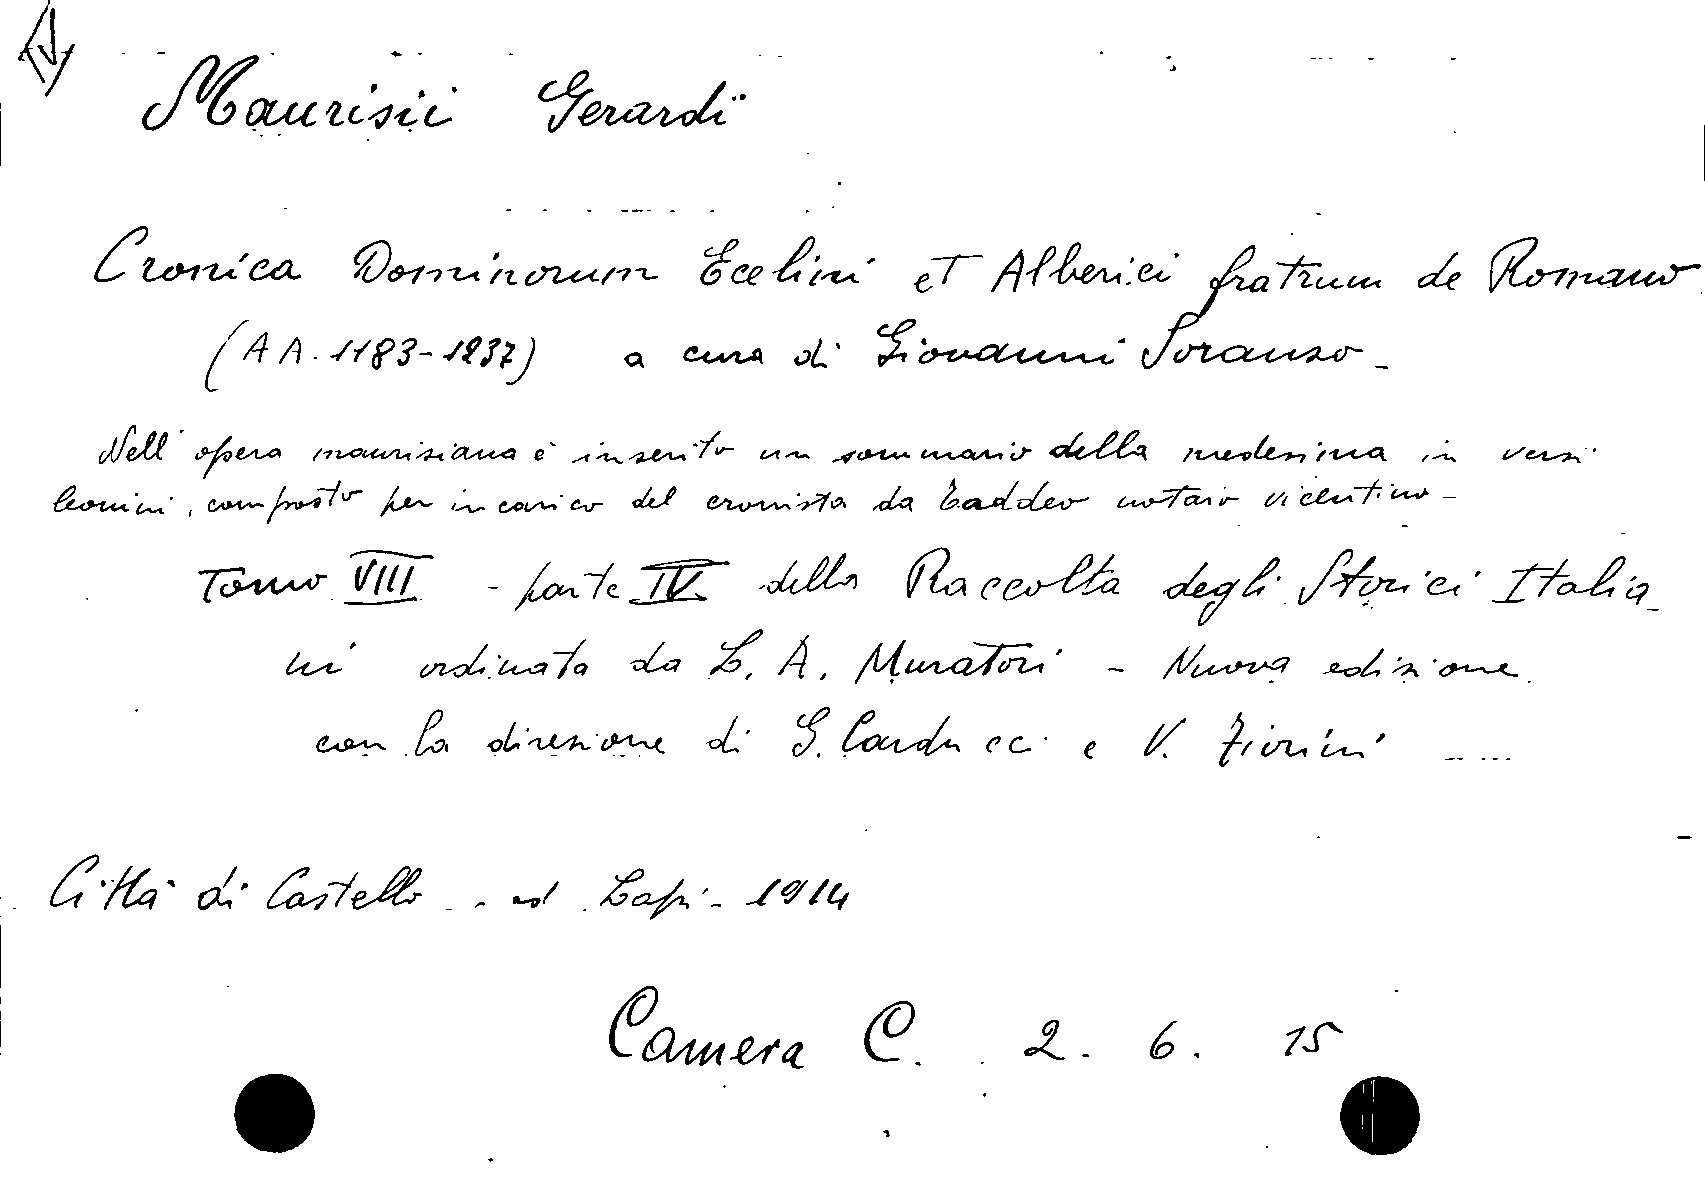 Maurisii Gerardi
Cronica Dominorum Ecelini et Alberici fratrum de Romano
(AA. 1183-1237) a cura di Giovanni Soranzo -
Nell'opera maurisiana è inserito un sommario della medesima in versi
leonini, composto per incarico del cronista da Taddeo notaio vicentino -
Tomo VIII - parte IV della Raccolta degli Storici Italia-
ni ordinata da L. A. Muratori - Nuova edizione
con la direzione di G. Carducci e V. Fiorini
Città di Castello - ed Lapi - 1914
Camera C. 2. 6. 15